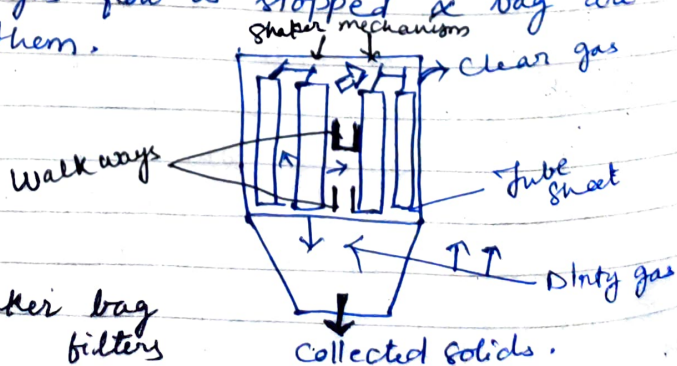 flow is stopped & bag are
them.
Shaker mechanism
Clean gas
Walkways
Tube
Sheet
Dirty gas
ker bag
filters
Collected solids.